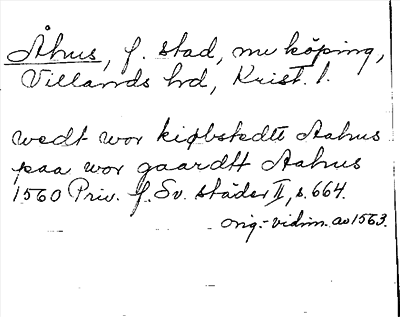 Åhus, f. stad, nu köping,
Villands hd, Krist. l.
wedt wor kiøbstedtt Aahus
paa wor gaardtt Aahus
1560 Priv. f. Sv. städer II, s. 664.
orig.-vidim. av 1563.